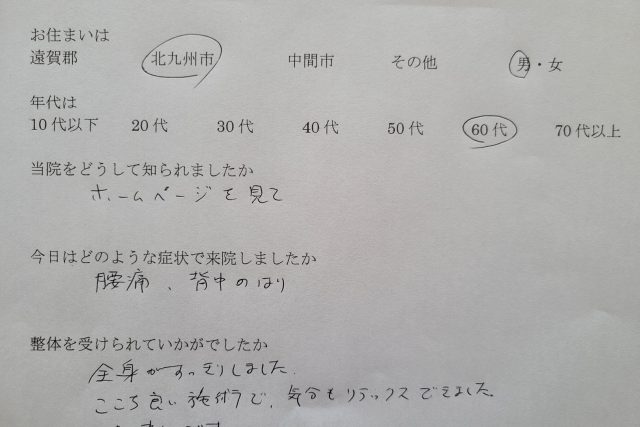 お住まいは
遠賀郡 北九州市 中間市 その他 男・女
年代は
10代以下 20代 30代 40代 50代 60代 70代以上
当院をどうして知られましたか
ホームページを見て
今日はどのような症状で来院しましたか
腰痛、背中のはり
整体を受けられていかがでしたか
全身がすっきりしました。
こころ良い施術で、気分もリラックスできました。